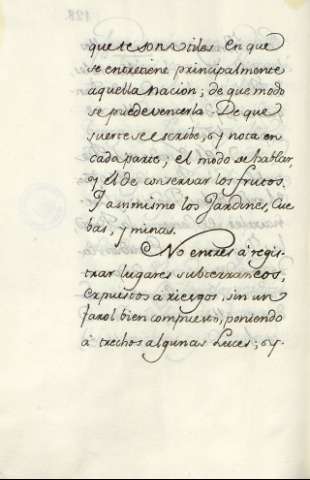 que te son utiles. En que
se entretiene principalmente
aquella nacion; de que modo
se puede vencerla. De que
suerte se escribe, ó y nota en
cada parte; el modo de hablar,
y el de conservar los frutos.
Y asimmismo los Jardines, Cue
bas, y minas.
No entres á regis-
trar lugares subterraneos,
expuestos á riesgos, sin un
farol bien compuesto, poniendo
á trechos algunas Luces; ó y.